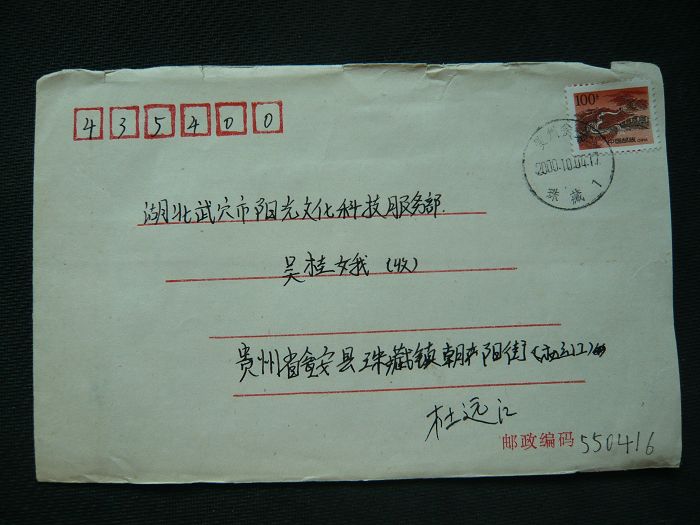 435400
100分
中国邮政 CHINA
贵州瓮安
2000.10.04.17
珠藏
1
湖北武穴市阳光文化科技服务部.
吴桂娥(收)
贵州省瓮安县珠藏镇朝阳街
杜远江
邮政编码 550416